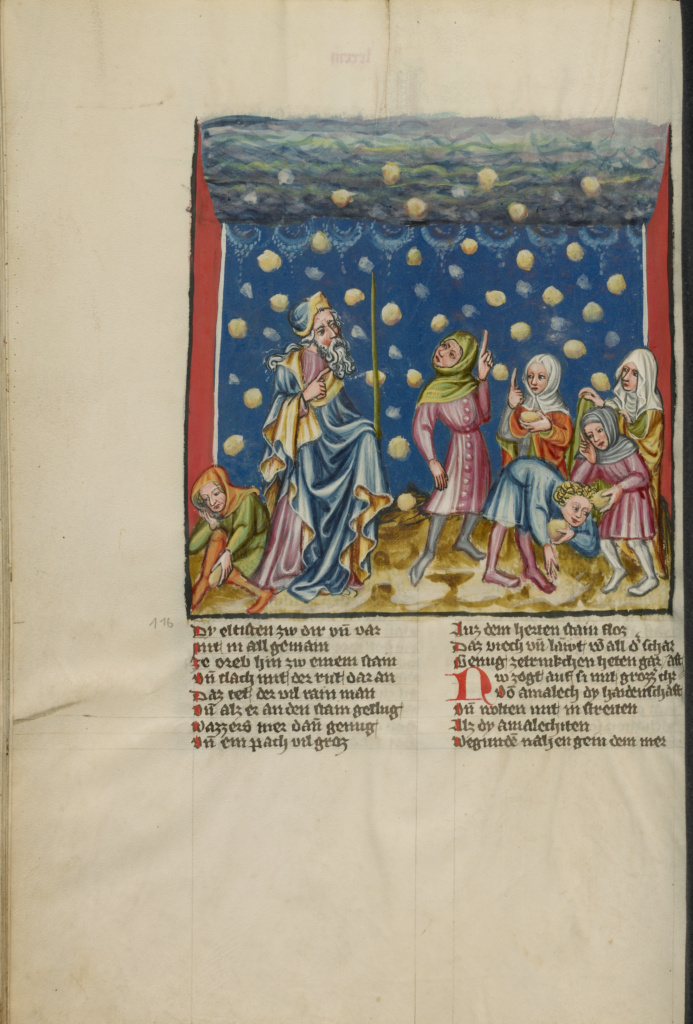 Dy eltisten zw dir vn̄ var
mit in all gemain
Ze oreb hin zw einem stain
Vn̄ slach mit der rut dar an
Daz tet der vil rain man
Vn̄ alz er an den stain geslug
Wazzers mer dan̄ genug
Vn̄ ein pach vil groz
116
Auz dem herten stain floz
Daz viech vn̄ läwt vō all dˢ schar
Genug zetrinkchen heten gar
Nw zogt auf si mit grozzer
Vō amalech dy haidenschaft
Vn̄ wolten mit in streiten
Alz dy amalechiten
Begundē nahen gein dem mer